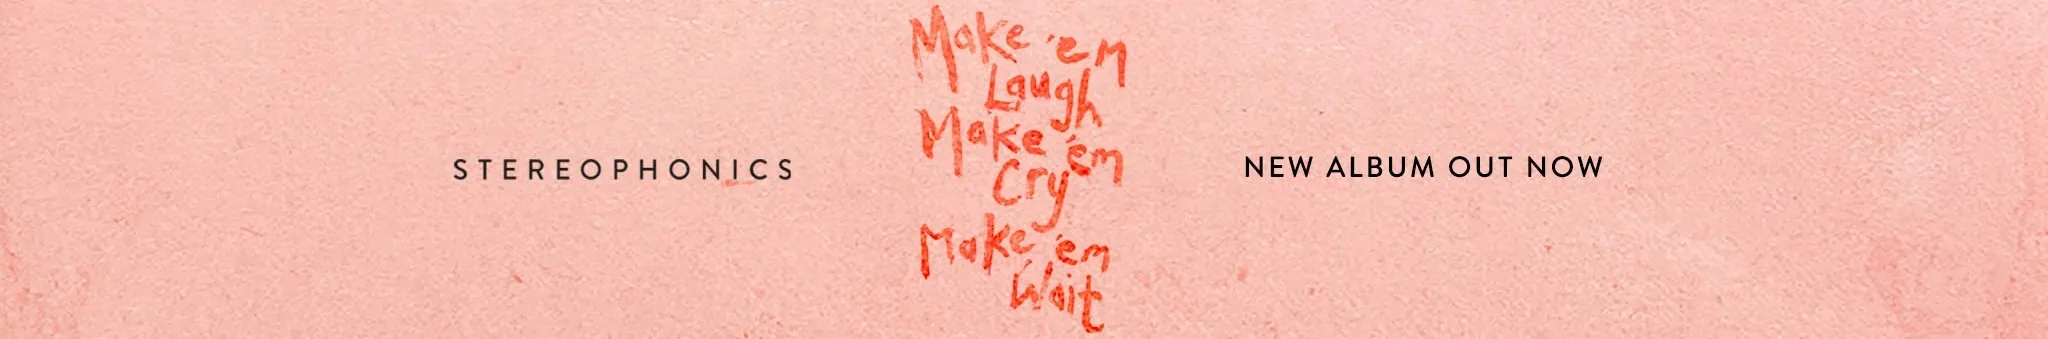 STEREOPHONICS
Make 'em
Laugh
Make 'em
Cry
Make 'em
Wait
NEW ALBUM OUT NOW